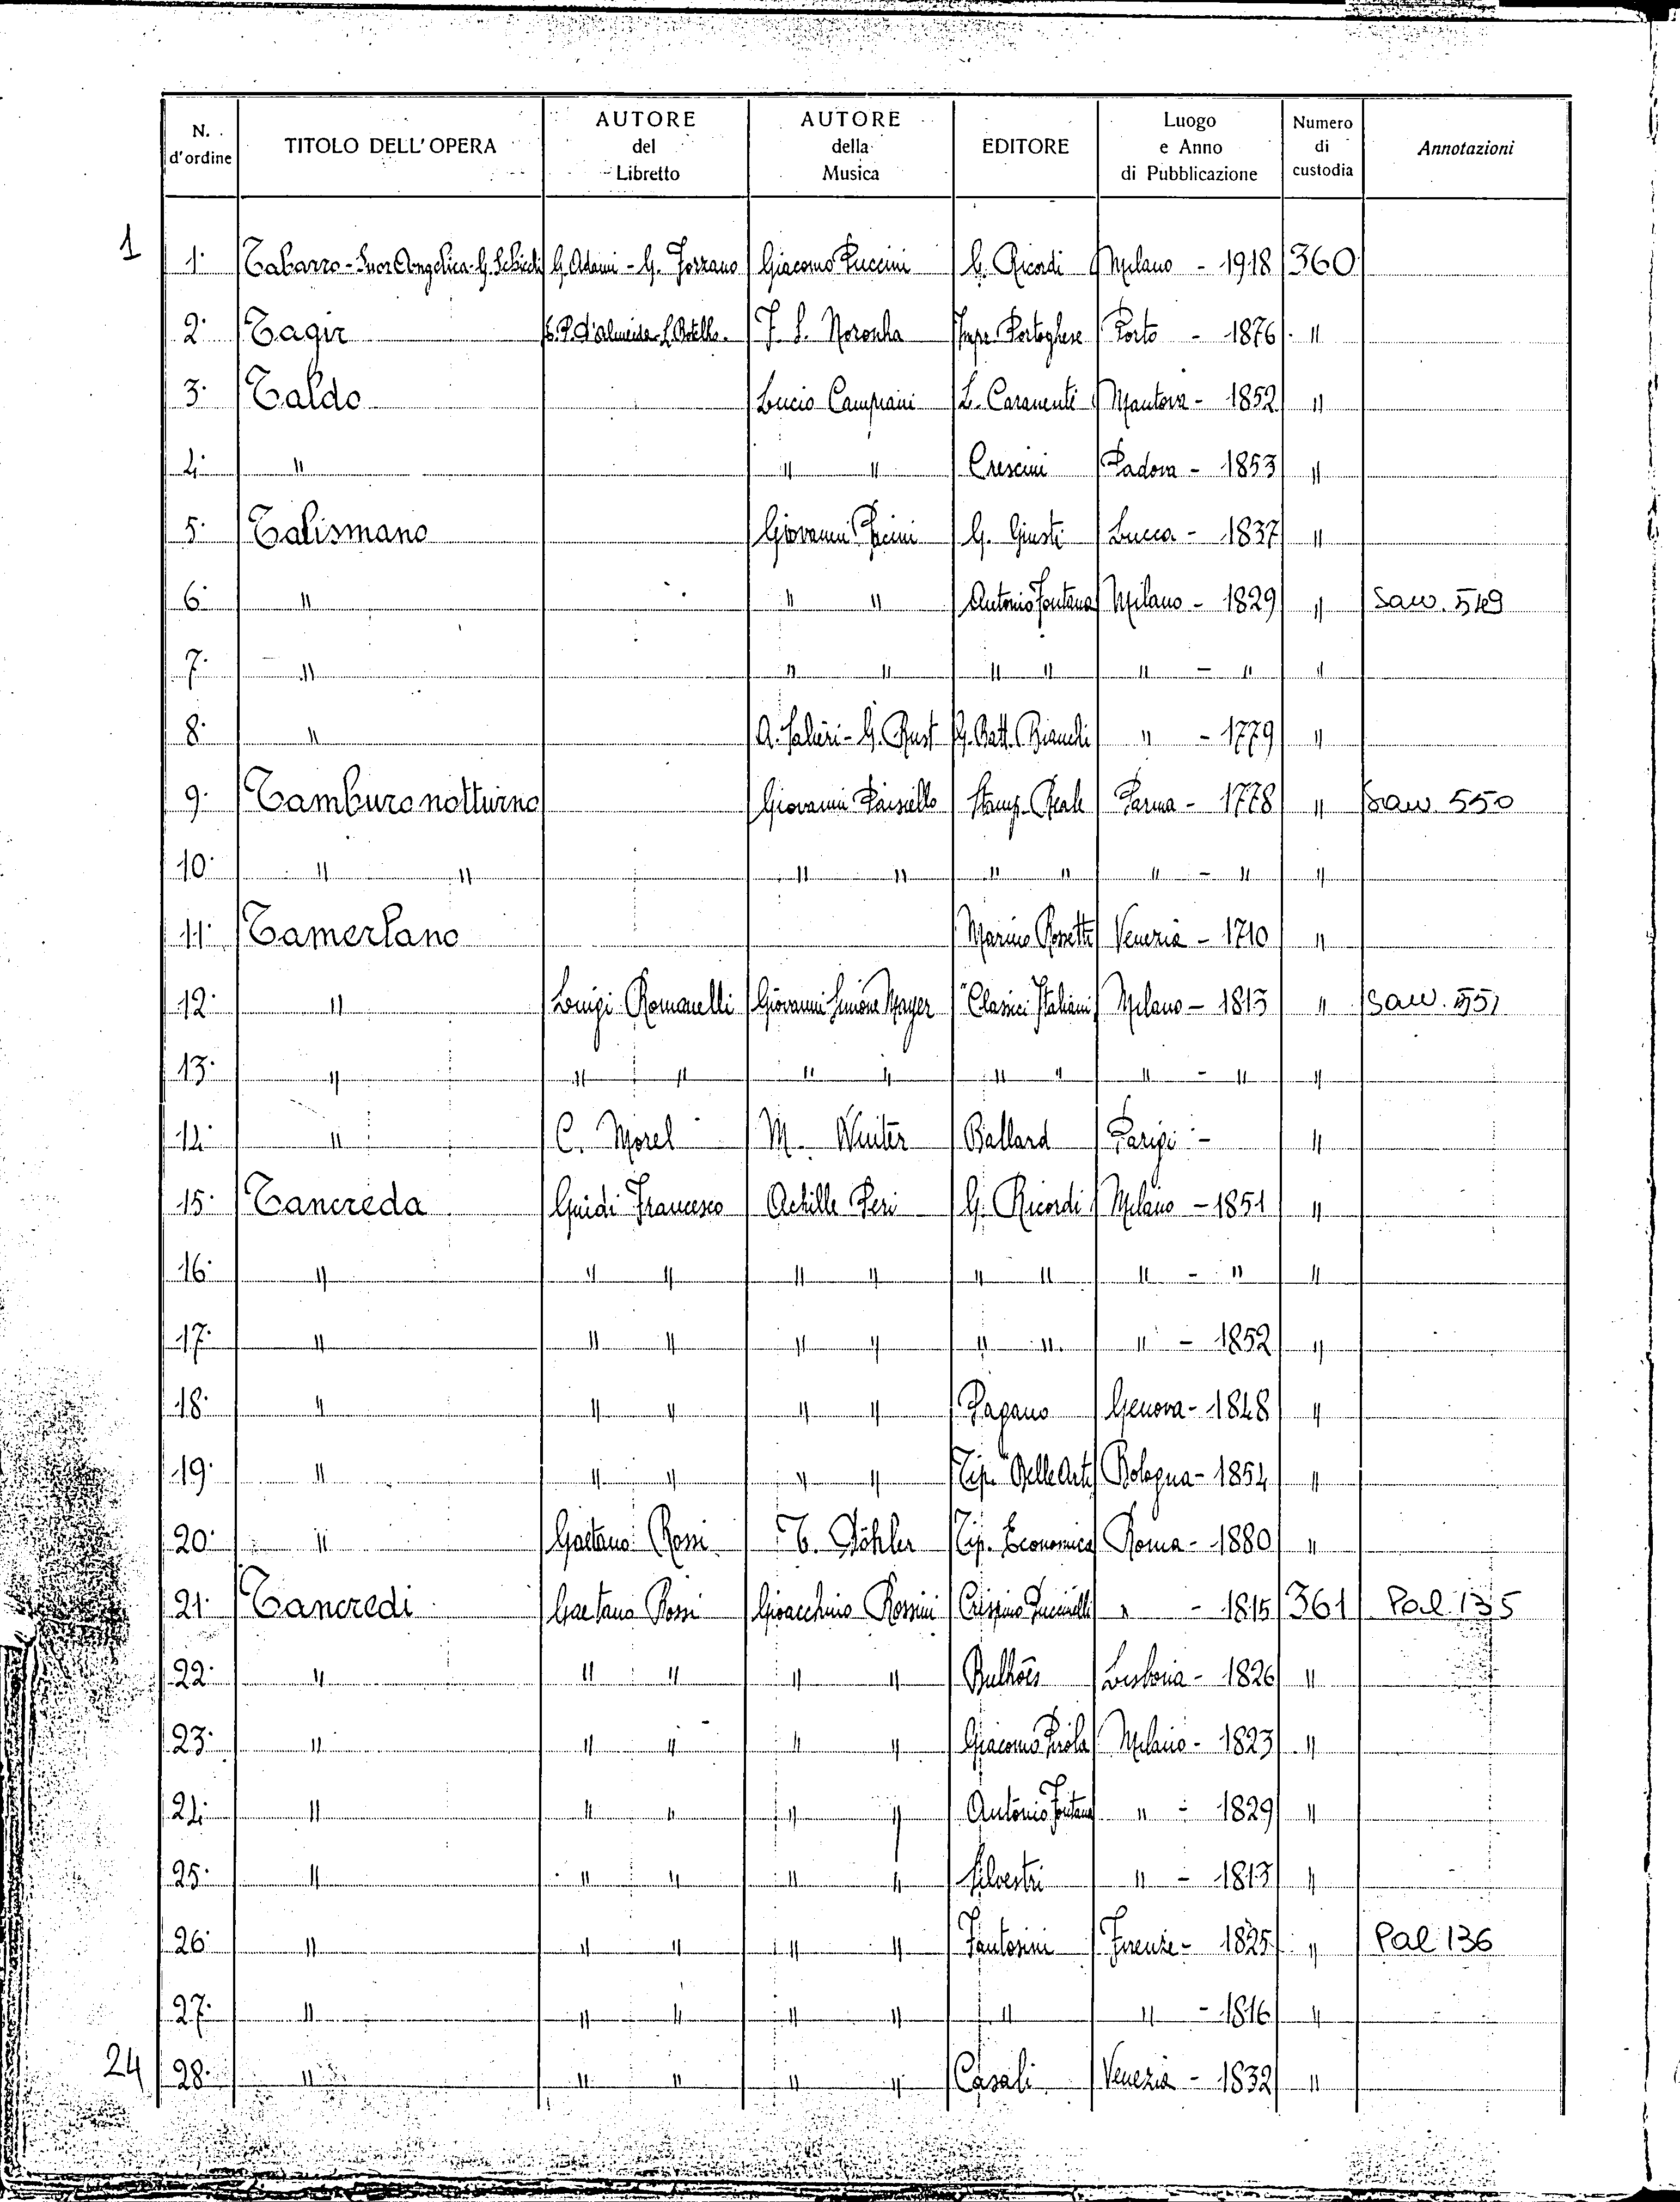 N. d'ordine | TITOLO DELL'OPERA | AUTORE del Libretto | AUTORE della Musica | EDITORE | Luogo e Anno di Pubblicazione | Numero di custodia | Annotazioni
1 1. Tabarro - Suor Angelica - G. Schicchi G. Adami - G. Forzano Giacomo Puccini G. Ricordi Milano - 1918 360
2. Tagir P. d'Almeida - Botelho F. S. Noronha Impr. Portoghese Porto - 1876 "
3. Taldo Lucio Campiani L. Caranenti Mantova - 1852 "
4. " " " Crescini Padova - 1853 "
5. Talismano Giovanni Pacini G. Giusti Lucca - 1837 "
6. " " " Antonio Fontana Milano - 1829 " Saw. 549
7. " " " " " " - " "
8. " A. Salieri - G. Rust G. Batt. Bianchi " - 1779 "
9. Tamburo notturno Giovanni Paisiello Stamp. Reale Parma - 1778 " Saw 550
10. " " " " " " " - " "
11. Tamerlano Marino Rossetti Venezia - 1710 "
12. " Luigi Romanelli Giovanni Simone Mayer "Classici Italiani Milano - 1813 " Saw. 551
13. " " " " " " " " - " "
14. " C. Morel M. Winter Ballard Parigi - "
15. Tancreda Guidi Francesco Achille Peri G. Ricordi Milano - 1851 "
16. " " " " " " " " - " "
17. " " " " " " " " - 1852 "
18. " " " " " Pagano Genova - 1848 "
19. " " " " " Tip. "Belle Arti Bologna - 1854 "
20. " Gaetano Rossi T. Döhler Tip. Economica Roma - 1880 "
21. Tancredi Gaetano Rossi Gioacchino Rossini Crispino Puccinelli " - 1815 361 Pal. 135
22. " " " " " Bulhões Lisbona - 1826 "
23. " " " " " Giacomo Pirola Milano - 1823 "
24. " " " " " Antonio Fontana " - 1829 "
25. " " " " " Silvestri " - 1813 "
26. " " " " " Fantosini Firenze - 1825 " Pal 136
27. " " " " " " " - 1816 "
24 28. " " " " " Casali Venezia - 1832 "